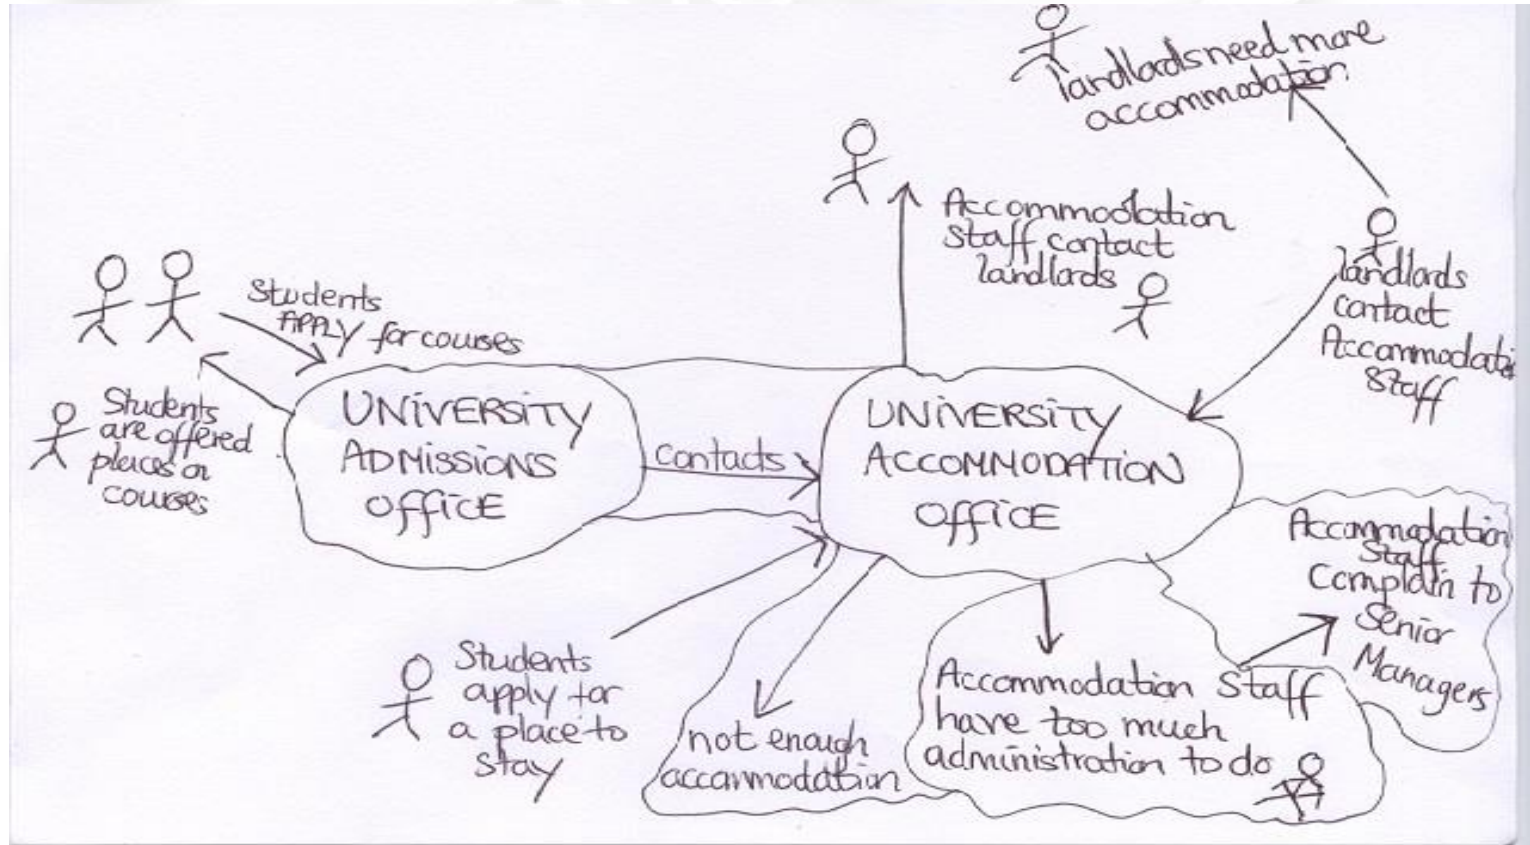 landlords need more
accommodation
Accommodation
Staff contact
landlords
landlords
contact
Accommodati
Staff
Students
APPLY for courses
Students
are offered
places on
courses
UNIVERSITY
ADMISSIONS
OFFICE
contacts
UNIVERSITY
ACCOMMODATION
OFFICE
Accommodation
Staff
Complain to
Senior
Managers
Students
apply for
a place to
stay
not enough
accommodation
Accommodation Staff
have too much
administration to do